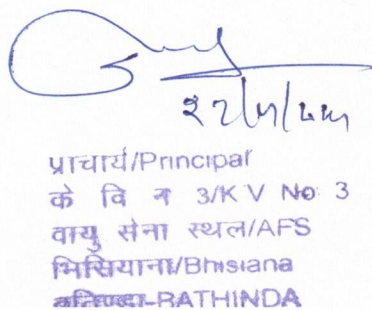 प्राचार्य/Principal
के वि न 3/K V No 3
वायु सेना स्थल/AFS
भिसियाना/Bhisiana
बठिण्डा-BATHINDA